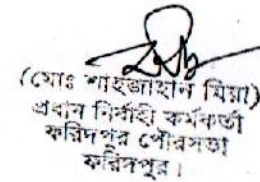 (মোঃ শাহজাহান মিয়া)
প্রধান নির্বাহী কর্মকর্তা
ফরিদপুর পৌরসভা
ফরিদপুর।